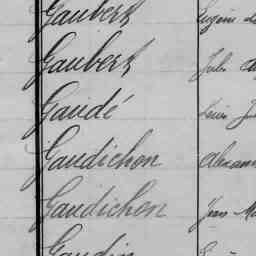 Gaubert Eugène
Gaubert Jules
Gaudé Louis
Gaudichon
Gaudichon Jean
Gaudin